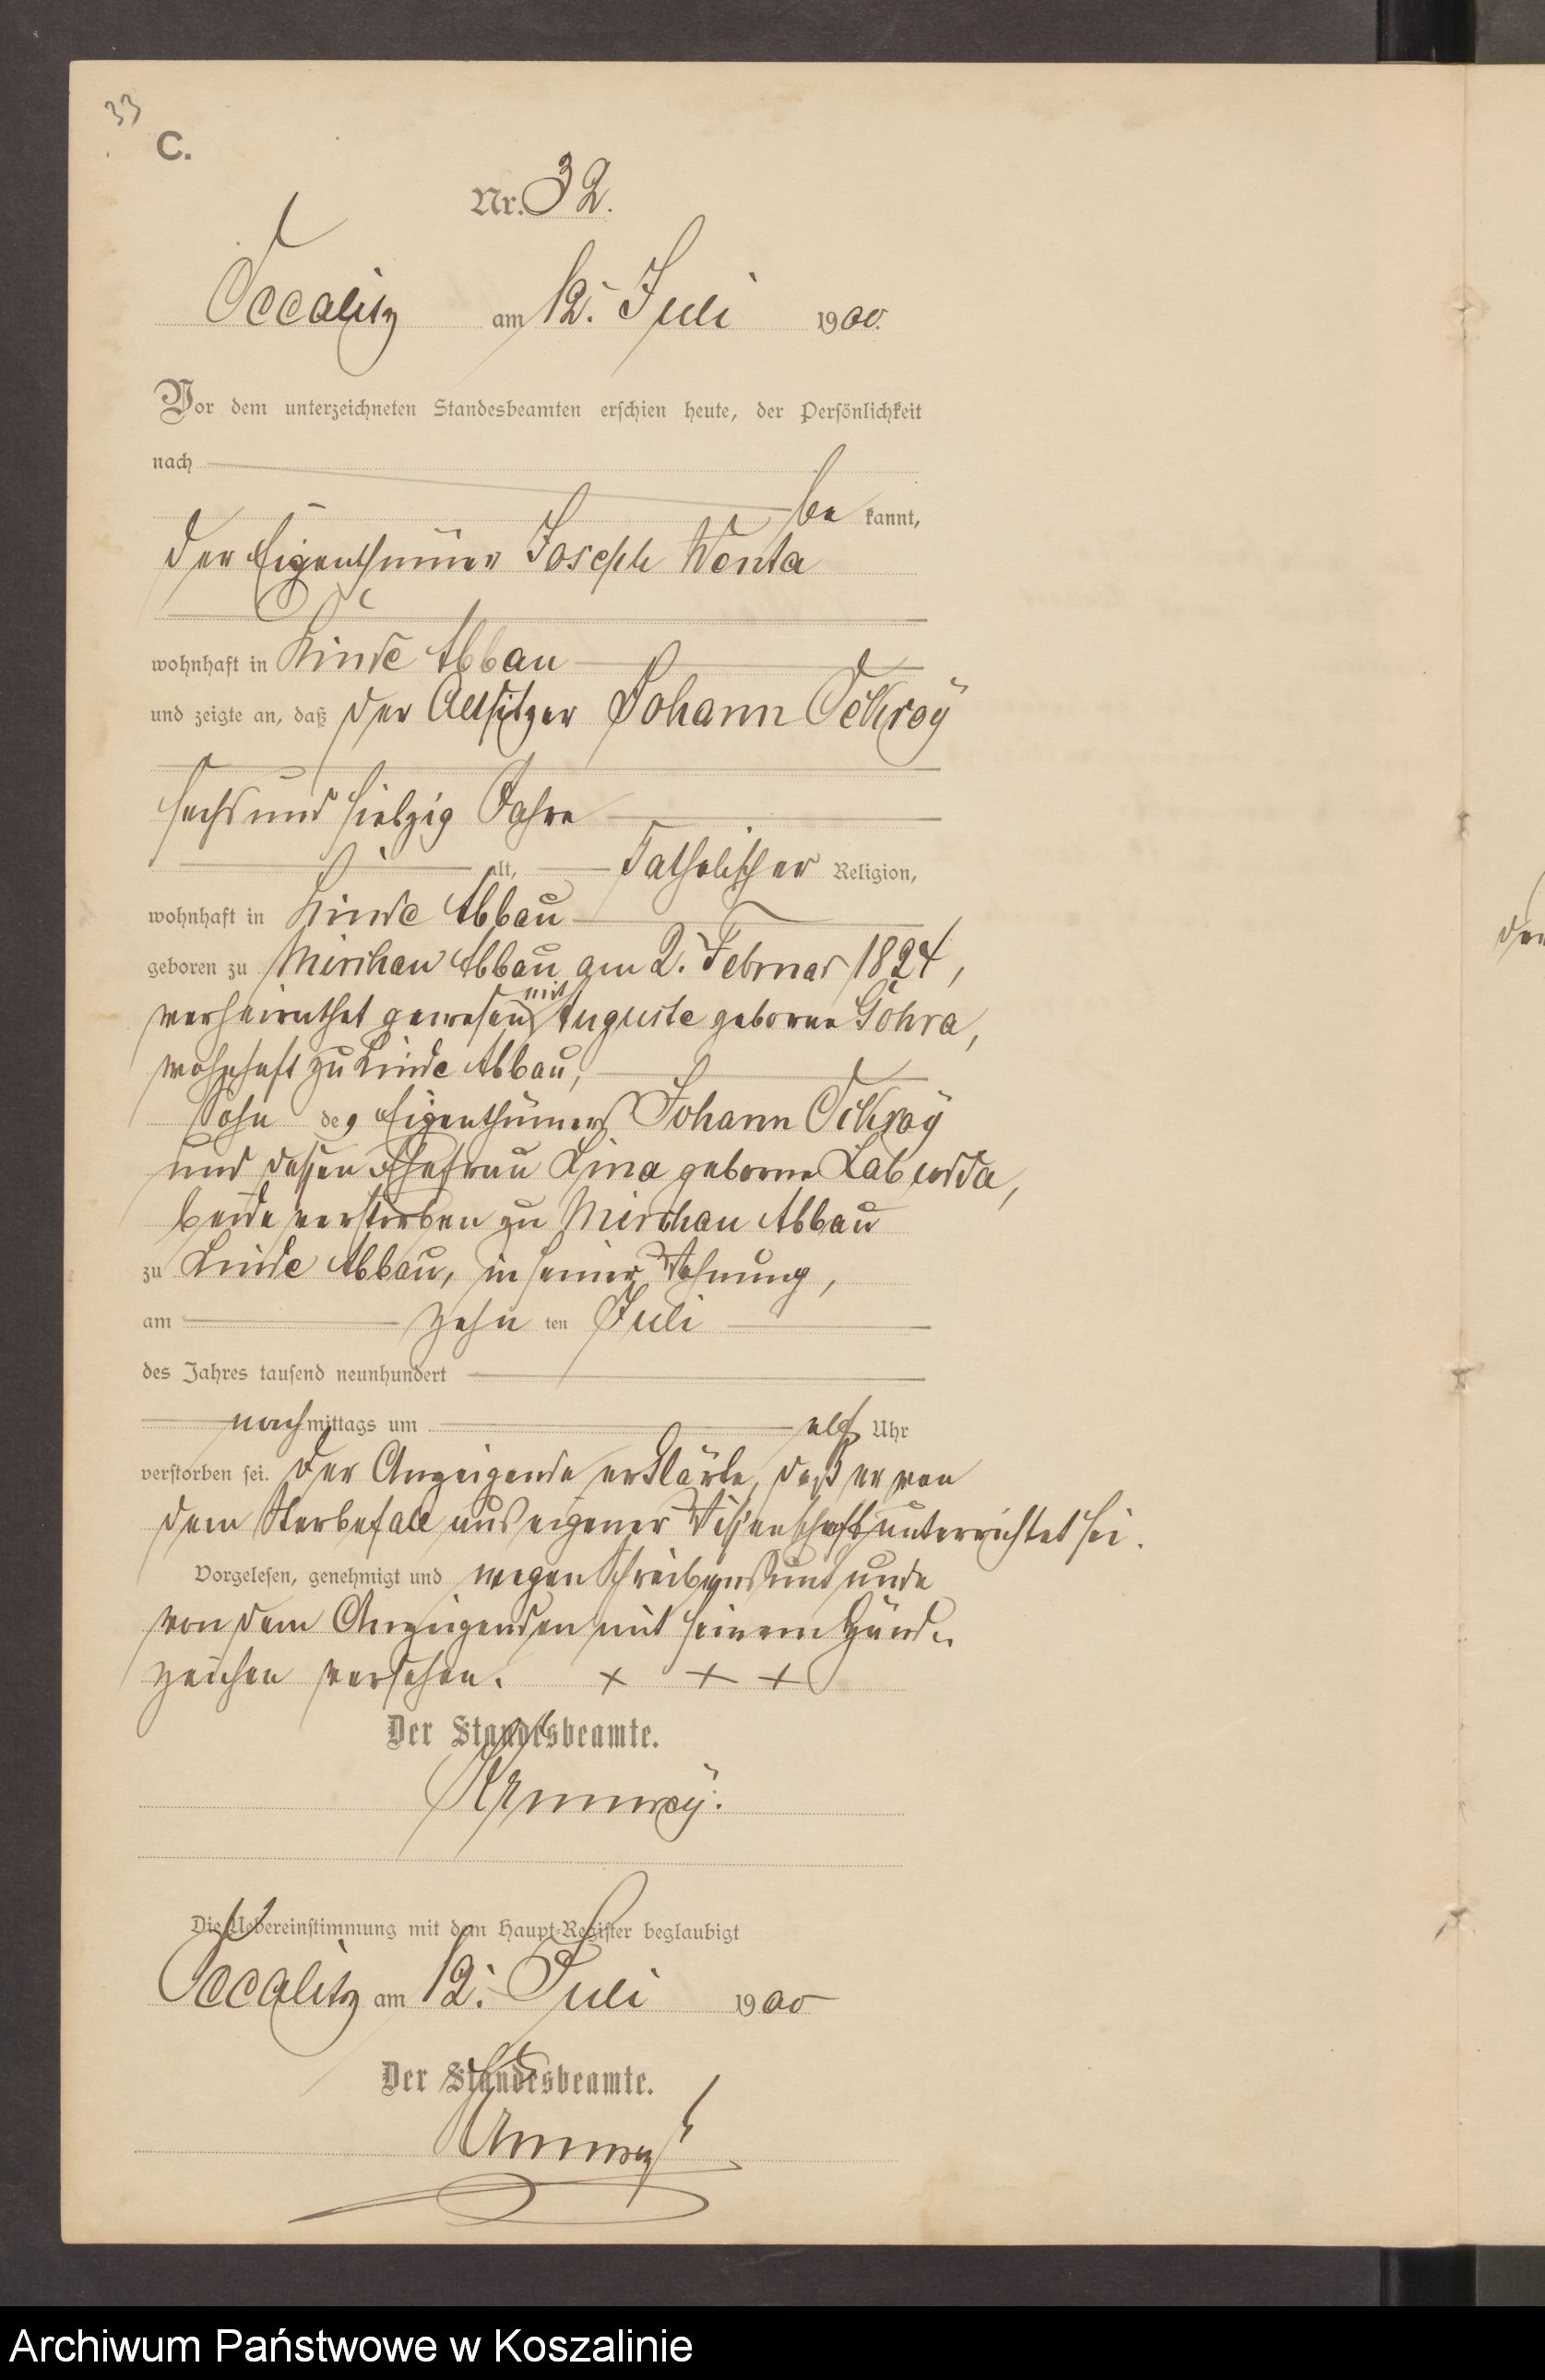 33
C.
Nr. 32.
Occalitz am 12. Juli 1900.
Vor dem unterzeichneten Standesbeamten erschien heute, der Persönlichkeit
nach
be kannt,
der Eigenthümer Joseph Wenta
wohnhaft in Linde Abbau
und zeigte an, daß der Altsitzer Johann
sechs und siebzig Jahre
alt, katholischer Religion,
wohnhaft in Linde Abbau
geboren zu Mirchau Abbau am 2. Februar 1824,
verheirathet gewesen mit Auguste geborne Göhra,
wohnhaft zu Linde Abbau,
Sohn des Eigenthümers Johann
und dessen Ehefrau Lina geborne Labudda,
beide verstorben zu Mirchau Abbau
zu Linde Abbau, in seiner Wohnung,
am zehn ten Juli
des Jahres tausend neunhundert
nach mittags um elf Uhr
verstorben sei. Der Anzeigende erklärte, daß er von
dem Sterbefall aus eigener Wissenschaft unterrichtet sei.
Vorgelesen, genehmigt und wegen Schreibensunkunde
von dem Anzeigenden mit seinem Hand-
zeichen versehen. + + +
Der Standesbeamte.
Die Uebereinstimmung mit dem Haupt-Register beglaubigt
Occalitz am 12. Juli 1900
Der Standesbeamte.
Archiwum Państwowe w Koszalinie